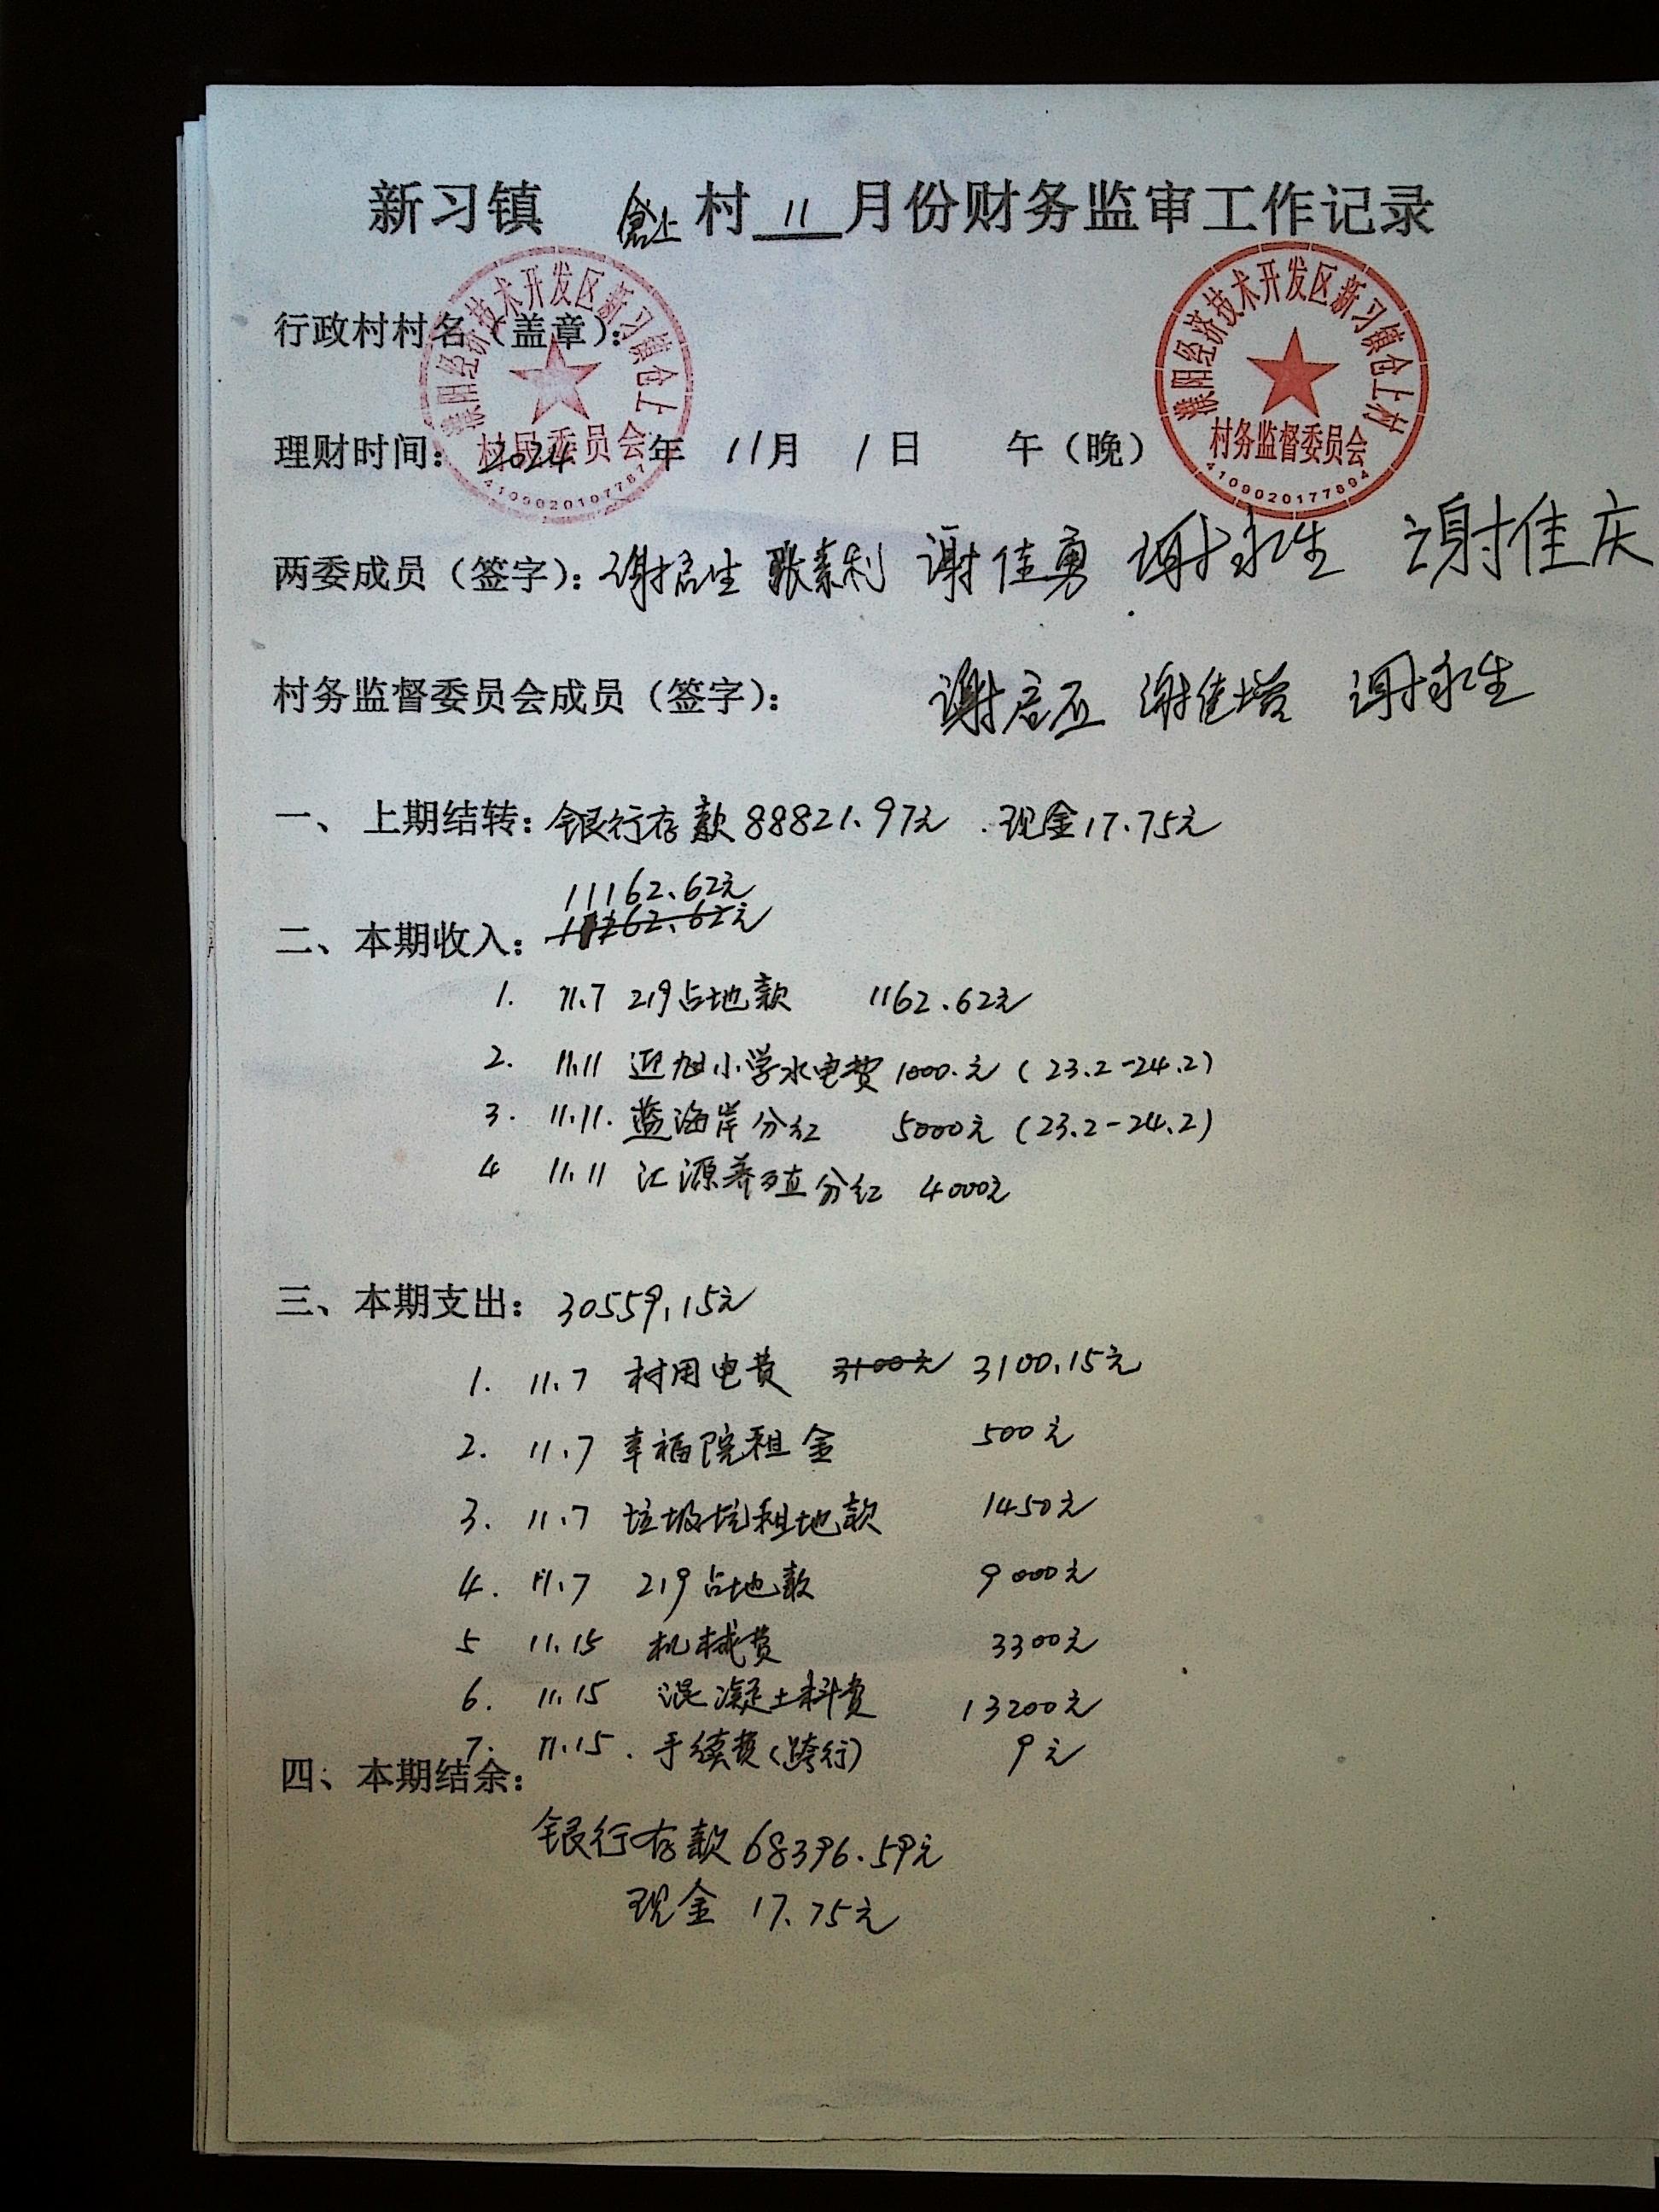 新习镇 倉上 村 11 月份财务监审工作记录
行政村村名（盖章）：
濮阳经济技术开发区新习镇仓上
村民委员会
濮阳经济技术开发区新习镇仓上村
村务监督委员会
4109020177894
理财时间：2024年 11月 1日 午（晚）
两委成员（签字）：谢启生 张素利 谢佳勇 谢永生 谢佳庆
村务监督委员会成员（签字）： 谢佳增 谢永生
一、 上期结转：银行存款88821.97元 . 现金17.75元
11162.62元
二、本期收入：
1. 11.7 219占地款 1162.62元
2. 11.11 迎旭小学水电费 1000.元（23.2-24.2）
3. 11.11. 蓝海岸分红 5000元（23.2-24.2）
4 11.11 汇源养殖分红 4000元
三、本期支出：30559.15元
1. 11.7 村用电费 3100元 3100.15元
2. 11.7 幸福院租金 500元
3. 11.7 垃圾坑租地款 1450元
4. 11.7 219占地款 9000元
5 11.15 机械费 3300元
6. 11.15 混凝土料费 13200元
7. 11.15. 手续费（跨行） 9元
四、本期结余：
银行存款68396.59元
现金 17.75元